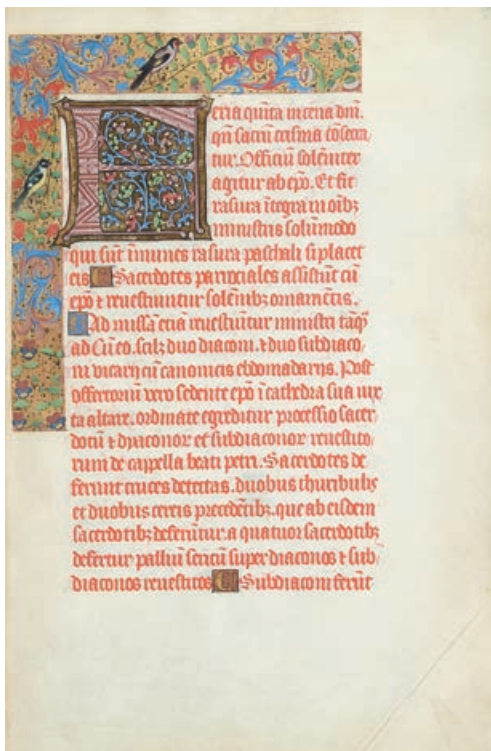 Feria quīta in cena dn̄i.
qn̄ sacrū crisma cōsecra
tur. Officiū solēniter
agitur ab ep̄o. Et fit
rasura ītegra in oīb;
ministris solūmodo
qui sūt īmunes rasura paschali si placet
eis Sacerdotes parrociales assistūt cū
ep̄o ⁊ reuestiuntur solēnib; ornamētis.
Ad missā etiā reuestiūtur ministri
ad scil; duo diaconi. ⁊ duo subdiaco
ni vicarij cū canonicis ebdomadarijs. Post
offertoriū vero sedente ep̄o ī cathedra sua iux
ta altare. ordinate egreditur processio sacer
dotū ⁊ dyaconor et subdiaconor reuestito
rum de cappella beati petri. Sacerdotes de
ferunt cruces detectas. duobus thuribulis
et duobus cereis precedētib;. que ab eisdem
sacerdotib; deferūtur. a quatuor sacerdotib;
defertur palliū sericū super diaconos ⁊ sub
diaconos reuestitos Subdiaconi ferūt